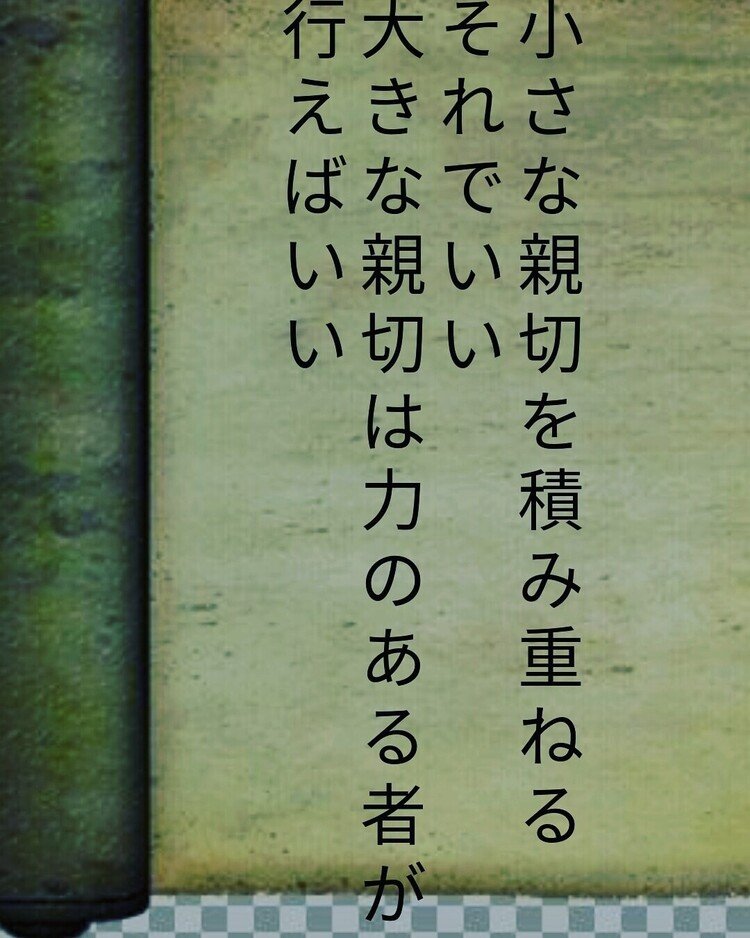 小さな親切を積み重ねる
それでいい
大きな親切は力のある者が
行えばいい